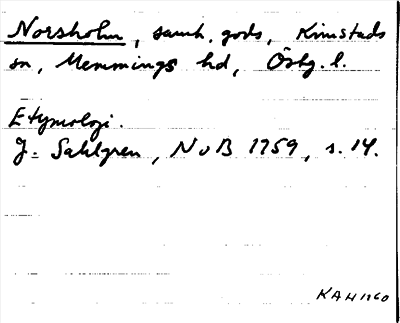 Norsholm, samh. gods, Kimstads
sn, Memmings hd, Östg. l.
Etymologi.
J. Sahlgren, NoB 1959, s. 14.
KAH 1960